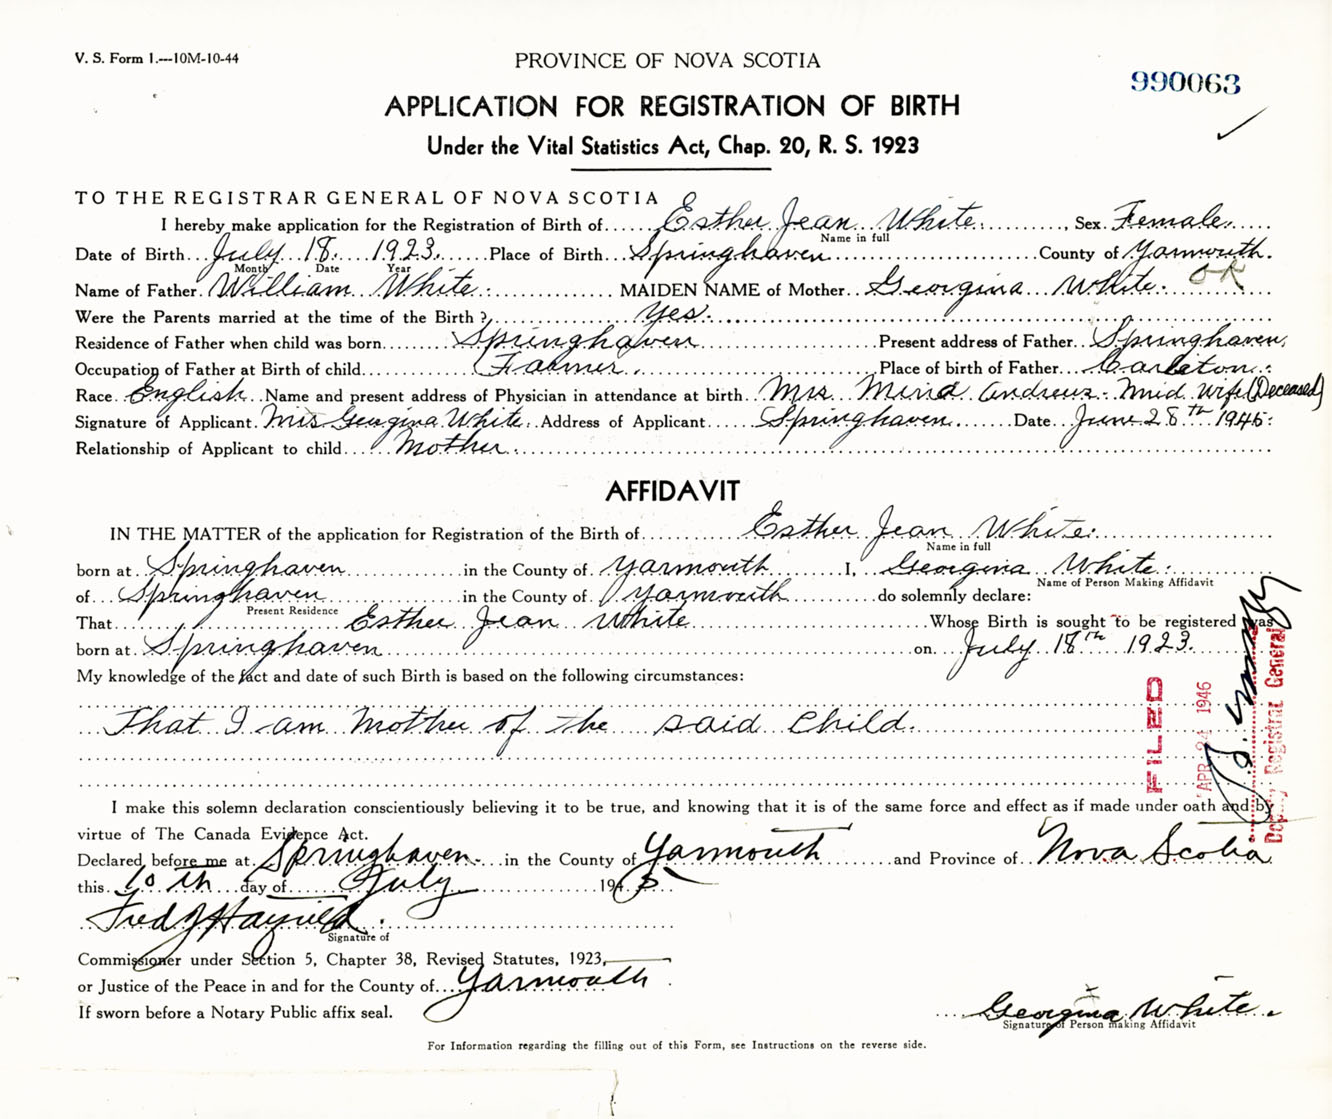 V. S. Form 1.---10M-10-44
PROVINCE OF NOVA SCOTIA
990063
APPLICATION FOR REGISTRATION OF BIRTH
Under the Vital Statistics Act, Chap. 20, R. S. 1923
TO THE REGISTRAR GENERAL OF NOVA SCOTIA
I hereby make application for the Registration of Birth of Esther Jean White. Sex Female.
Name in full
Date of Birth July 18. 1923. Place of Birth Springhaven County of Yarmouth.
Month Date Year
Name of Father William White. MAIDEN NAME of Mother Georgina White. OK
Were the Parents married at the time of the Birth? Yes.
Residence of Father when child was born Springhaven Present address of Father Springhaven.
Occupation of Father at Birth of child Farmer. Place of birth of Father Carleton.
Race English Name and present address of Physician in attendance at birth Mrs. Andrews. Mid Wife (Deceased)
Signature of Applicant Mrs Georgina White. Address of Applicant Springhaven. Date June 28th 1945.
Relationship of Applicant to child Mother.
AFFIDAVIT
IN THE MATTER of the application for Registration of the Birth of Esther Jean White.
Name in full
born at Springhaven in the County of Yarmouth I, Georgina White.
Name of Person Making Affidavit
of Springhaven in the County of Yarmouth do solemnly declare:
Present Residence
That Esther Jean White Whose Birth is sought to be registered was
born at Springhaven on July 18th 1923.
My knowledge of the fact and date of such Birth is based on the following circumstances:
That I am Mother of the said Child.
FILED
APR 24 1946
Deputy Registrar General
I make this solemn declaration conscientiously believing it to be true, and knowing that it is of the same force and effect as if made under oath and by
virtue of The Canada Evidence Act.
Declared before me at Springhaven in the County of Yarmouth and Province of Nova Scotia
this 10th day of July 1945
Fred
Signature of
Commissioner under Section 5, Chapter 38, Revised Statutes, 1923,
or Justice of the Peace in and for the County of Yarmouth
If sworn before a Notary Public affix seal.
Georgina White.
Signature of Person making Affidavit
For Information regarding the filling out of this Form, see Instructions on the reverse side.